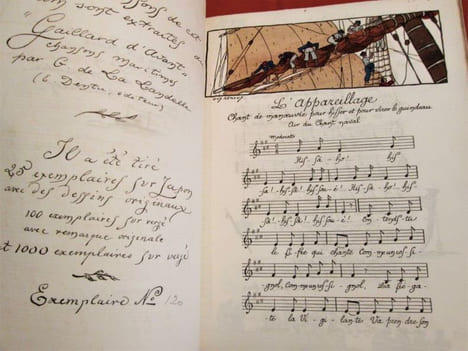 sons de ce
sont extraites d
"Gaillard d'Avant"
chansons maritimes
par G. de La Landelle
(E. Dentu, éditeur)
Il a été tiré
25 exemplaires sur Japon
avec des dessins originaux
100 exemplaires sur vergé
avec remarque originale
et 1000 exemplaires sur vergé
Exemplaire No 120
L'Appareillage
Chant de manœuvre pour hisser et pour virer le guindeau
Air du Chant naval
Moderato
His- sa- ho! his
sa! his- sa- é! his- sa- ho! his-
sa! his- sa! his- sa- é! En- tends-tu
le fi- fre qui chante Com- mun- ros- si-
gnol, Com- mun- ros- si- gnol, La fré- ga-
te la Vi- gi- lan- te Va pren- dre son